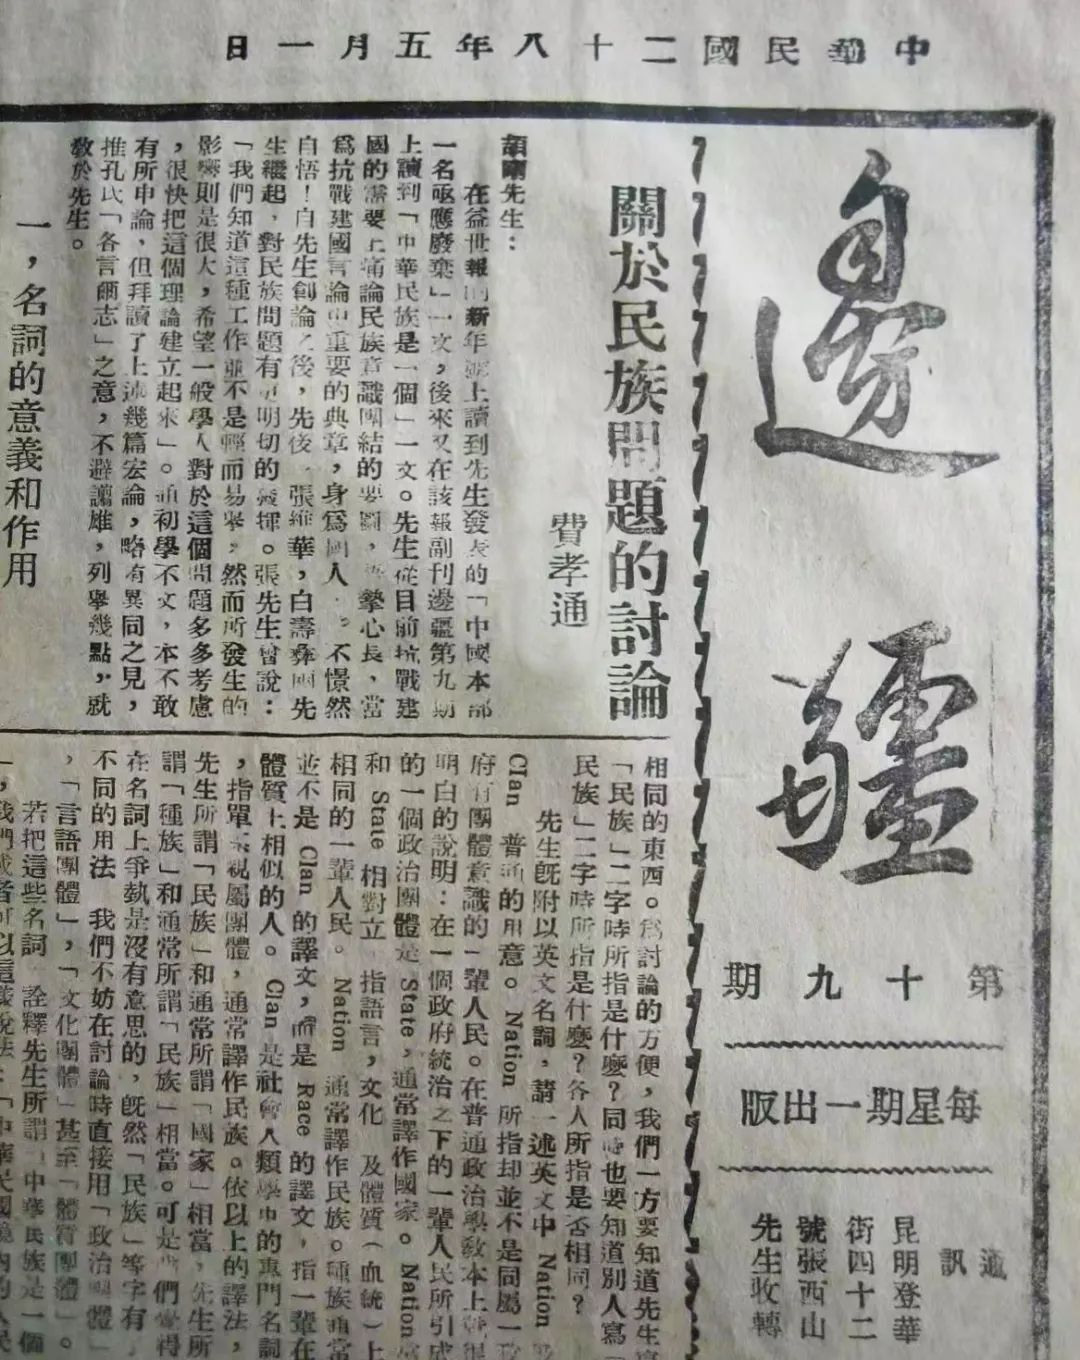 中華民國二十八年五月一日
邊疆
第十九期
每星期一出版
通訊
昆明登華
街四十二
號張西山
先生收轉
關於民族問題的討論
費孝通
頡剛先生：
在益世報的新年號上讀到先生發表的「中國本部
一名亟應廢棄」一文，後來又在該報副刊邊疆第九期
上讀到「中華民族是一個」一文。先生從目前抗戰建
國的需要上痛論民族意識團結的要圖，語摯心長，當
爲抗戰建國言論中重要的典章，身爲國人，不憬然
自悟！自先生創論之後，先後張維華，白壽彝兩先
生繼起，對民族問題有更明切的發揮。張先生曾說：
「我們知道這種工作並不是輕而易舉，然而所發生的
影響則是很大，希望一般學人對於這個問題多多考慮
，很快把這個理論建立起來」。通初學不文，本不敢
有所申論，但拜讀了上述幾篇宏論，略有異同之見，
推孔氏「各言爾志」之意，不避譾雄，列舉幾點，就
教於先生。
一，名詞的意義和作用
相同的東西。爲討論的方便，我們一方要知道先生寫
「民族」二字時所指是什麼？同時也要知道別人寫「
民族」二字時所指是什麼？各人所指是否相同？
先生旣附以英文名詞，請一述英文中 Nation 及
Clan 普通的用意。Nation 所指却並不是同屬一政
府有團體意識的一輩人民。在普通政治學教本上就很
明白的說明：在一個政府統治之下的一輩人民所引成
的一個政治團體是 State，通常譯作國家。Nation 常
和 State 相對立，指語言，文化，及體質（血統）上
相同的一輩人民。Nation 通常譯作民族。種族通常
並不是 Clan 的譯文，而是 Race 的譯文，指一輩在
體質上相似的人。Clan 是社會人類學中的專門名詞
，指單系親屬團體，通常譯作氏族。依以上的譯法，
先生所謂「民族」和通常所謂「國家」相當，先生所
謂「種族」和通常所謂「民族」相當。可是我們覺得
在名詞上爭執是沒有意思的，旣然「民族」等字有
不同的用法，我們不妨在討論時直接用「政治團體」
，「言語團體」，「文化團體」甚至「體質團體」。
若把這些名詞，詮釋先生所謂「中華民族是一個
」，我們或者可以這樣說法：「中華民國境內的人民